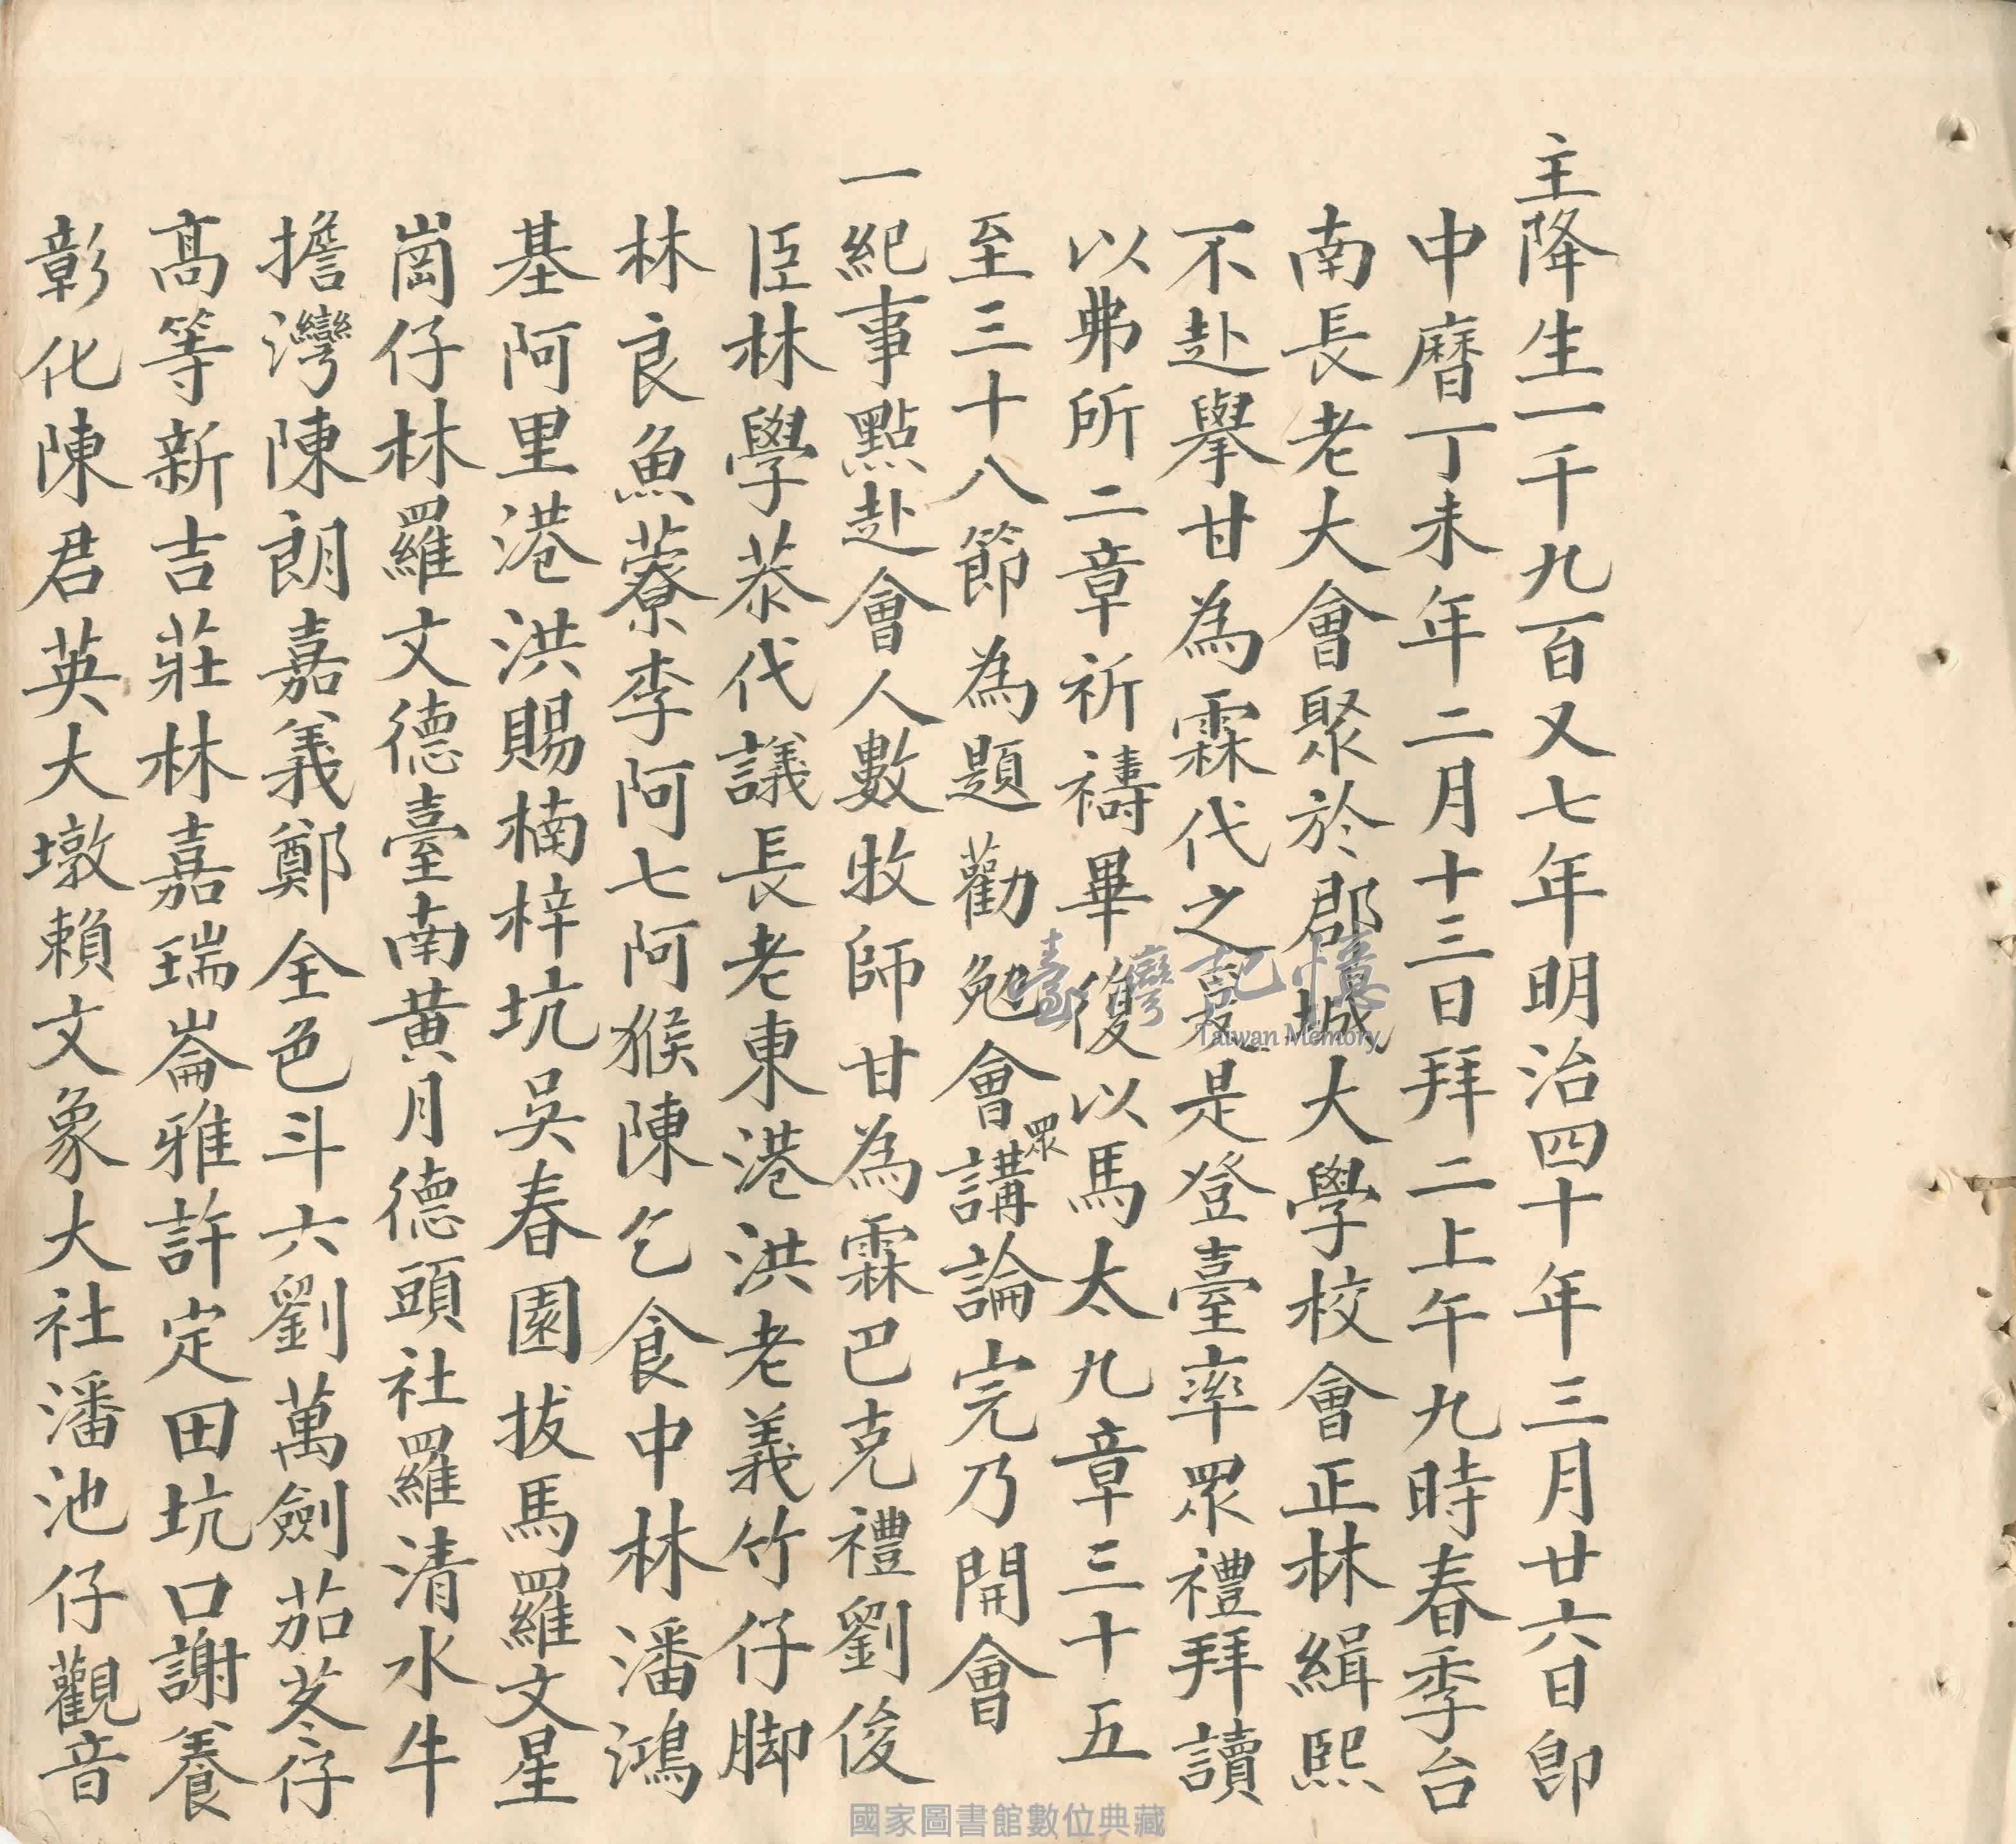 主降生一千九百又七年明治四十年三月廿六日即
中曆丁未年二月十三日拜二上午九時春季台
南長老大會聚於郡城大學校會正林緝熙
不赴舉甘為霖代之於是登臺率眾禮拜讀
以弗所二章祈禱畢復以馬太九章三十五
至三十八節為題勸勉會眾講論完乃開會
一紀事點赴會人數牧師甘為霖巴克禮劉俊
臣林學恭代議長老東港洪老義竹仔脚
林良魚藔李阿七阿猴陳乞食中林潘鴻
基阿里港洪賜楠梓坑吳春園拔馬羅文星
崗仔林羅文德臺南黃月德頭社羅清水牛
擔灣陳朗嘉義鄭全色斗六劉萬劍茄苳仔
高等新吉莊林嘉瑞崙雅許定田坑口謝養
彰化陳君英大墩賴文象大社潘池仔觀音
臺灣記憶
Taiwan Memory
國家圖書館數位典藏